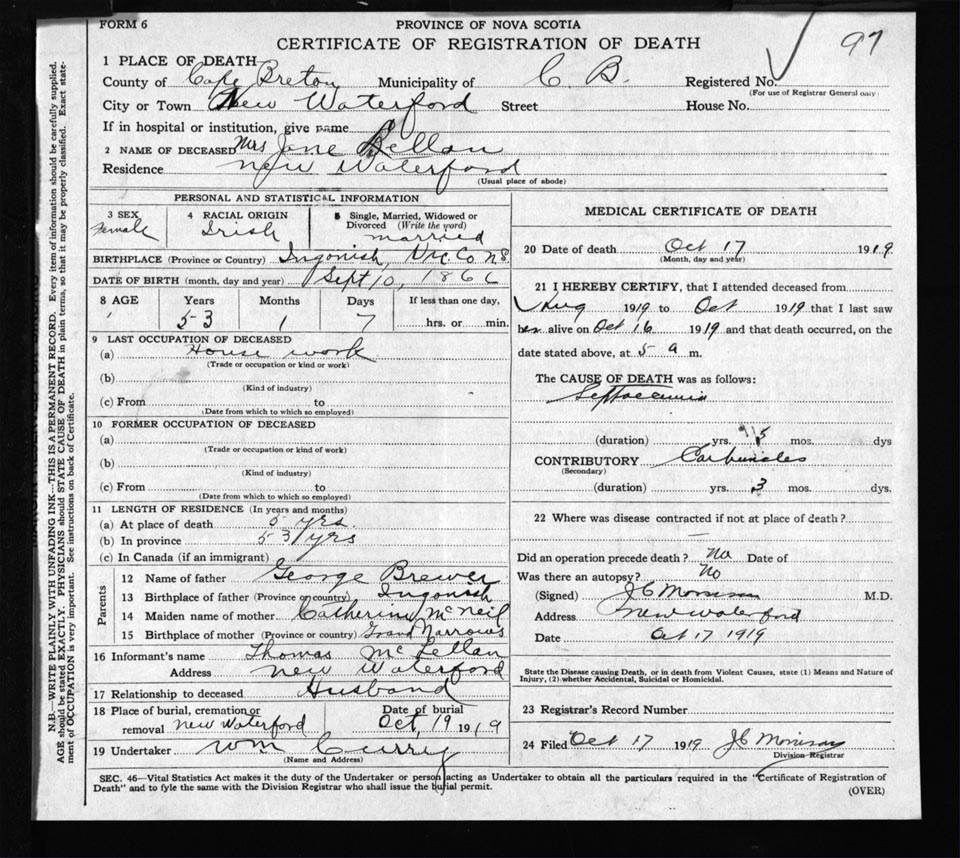 FORM 6
97
PROVINCE OF NOVA SCOTIA
CERTIFICATE OF REGISTRATION OF DEATH
1 PLACE OF DEATH
County of Cape Breton Municipality of C B. Registered No.
(For use of Registrar General only)
City or Town New Waterford Street House No.
If in hospital or institution, give name
2 NAME OF DECEASED Mrs Jane
Residence New Waterford
(Usual place of abode)
PERSONAL AND STATISTICAL INFORMATION
3 SEX Female
4 RACIAL ORIGIN Irish
5 Single, Married, Widowed or Divorced (Write the word) married
BIRTHPLACE (Province or Country) Ingonish, Vic. Co N.S.
DATE OF BIRTH (month, day and year) Sept 10, 1866
8 AGE Years Months Days If less than one day,
53 1 7 hrs. or min.
9 LAST OCCUPATION OF DECEASED
(a) House work
(Trade or occupation or kind or work)
(b)
(Kind of industry)
(c) From to
(Date from which to which so employed)
10 FORMER OCCUPATION OF DECEASED
(a)
(Trade or occupation or kind of work)
(b)
(Kind of industry)
(c) From to
(Date from which to which so employed)
11 LENGTH OF RESIDENCE (In years and months)
(a) At place of death 5 yrs.
(b) In province 53 yrs
(c) In Canada (if an immigrant)
Parents
12 Name of father George Brewer
13 Birthplace of father (Province or country) Ingonish
14 Maiden name of mother Catherine McNeil
15 Birthplace of mother (Province or country) Grand Narrows
16 Informant's name Thomas McLellan
Address New Waterford
17 Relationship to deceased Husband
18 Place of burial, cremation or Date of burial
removal New Waterford Oct, 19 1919
19 Undertaker Wm Curry
(Name and Address)
MEDICAL CERTIFICATE OF DEATH
20 Date of death Oct 17 1919
(Month, day and year)
21 I HEREBY CERTIFY, that I attended deceased from
Aug 1919 to Oct 1919 that I last saw
her alive on Oct 16 1919 and that death occurred, on the
date stated above, at 5 a m.
The CAUSE OF DEATH was as follows:
Septicaemia
(duration) yrs. 5 mos. dys
CONTRIBUTORY Carbuncles
(Secondary)
(duration) yrs. 3 mos. dys.
22 Where was disease contracted if not at place of death?
Did an operation precede death? No Date of
Was there an autopsy? No
(Signed) J C Morrison M.D.
Address New Waterford
Date Oct 17 1919
State the Disease causing Death, or in death from Violent Causes, state (1) Means and Nature of
Injury, (2) whether Accidental, Suicidal or Homicidal.
23 Registrar's Record Number
24 Filed Oct 17 1919 J C Morrison
Division Registrar
SEC. 46—Vital Statistics Act makes it the duty of the Undertaker or person acting as Undertaker to obtain all the particulars required in the "Certificate of Registration of
Death" and to fyle the same with the Division Registrar who shall issue the burial permit.
(OVER)
N.B.—WRITE PLAINLY WITH UNFADING INK—THIS IS A PERMANENT RECORD. Every item of information should be carefully supplied.
AGE should be stated EXACTLY. PHYSICIANS should STATE CAUSE OF DEATH in plain terms, so that it may be properly classified. Exact state-
ment of OCCUPATION is very important. See instructions on back of Certificate.